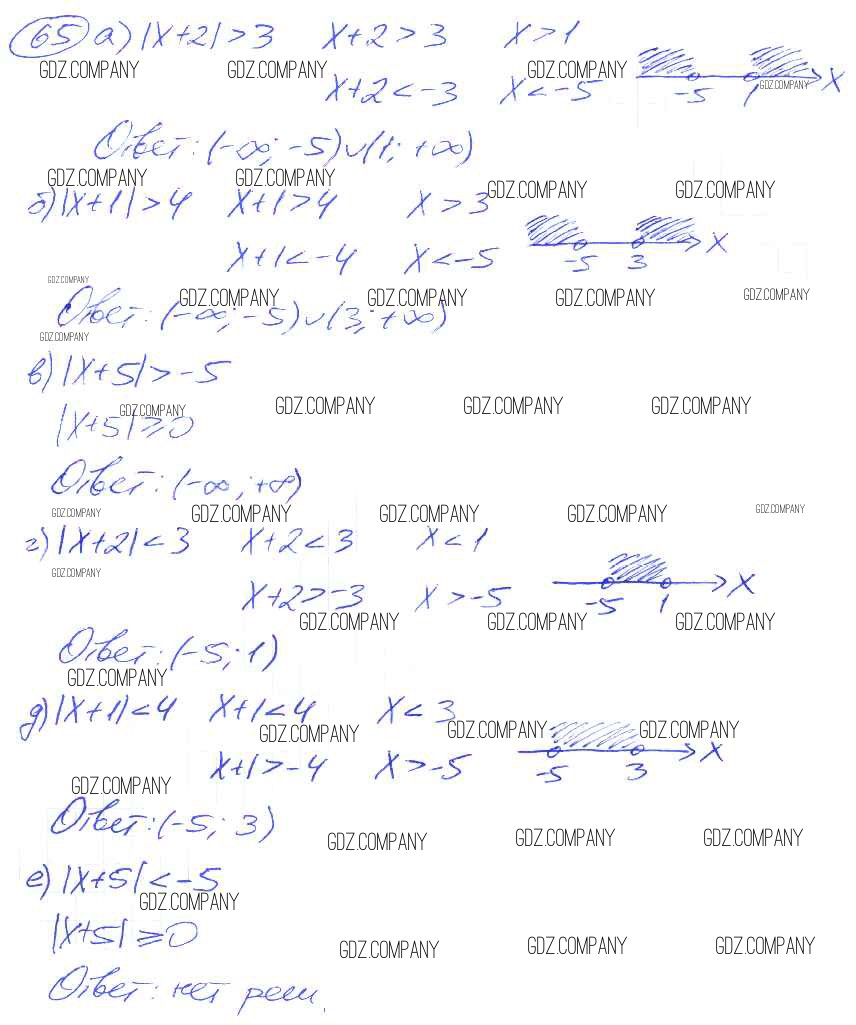 65 а) |x+2|>3 x+2>3 x>1
GDZ.COMPANY GDZ.COMPANY GDZ.COMPANY
x+2<-3 x<-5 -5 1 x
GDZ.COMPANY
Ответ: (-∞; -5)∪(1; +∞)
GDZ.COMPANY GDZ.COMPANY GDZ.COMPANY GDZ.COMPANY
б) |x+1|>4 x+1>4 x>3
x+1<-4 x<-5 -5 3 x
GDZ.COMPANY
GDZ.COMPANY GDZ.COMPANY GDZ.COMPANY GDZ.COMPANY
Ответ: (-∞; -5)∪(3; +∞)
GDZ.COMPANY
в) |x+5|>-5
GDZ.COMPANY GDZ.COMPANY GDZ.COMPANY GDZ.COMPANY
|x+5|≥0
Ответ: (-∞; +∞)
GDZ.COMPANY GDZ.COMPANY GDZ.COMPANY GDZ.COMPANY GDZ.COMPANY
г) |x+2|<3 x+2<3 x<1
GDZ.COMPANY
x+2>-3 x>-5 -5 1 x
GDZ.COMPANY GDZ.COMPANY GDZ.COMPANY
Ответ: (-5; 1)
GDZ.COMPANY
д) |x+1|<4 x+1<4 x<3
GDZ.COMPANY GDZ.COMPANY GDZ.COMPANY
x+1>-4 x>-5 -5 3 x
GDZ.COMPANY
Ответ: (-5; 3)
GDZ.COMPANY GDZ.COMPANY GDZ.COMPANY
е) |x+5|<-5
GDZ.COMPANY
|x+5|≥0
GDZ.COMPANY GDZ.COMPANY GDZ.COMPANY
Ответ: нет реш.